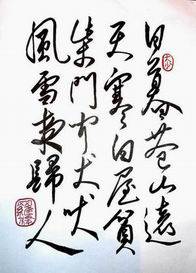 日暮苍山遠
天寒白屋貧
柴門闻犬吠
風雪夜歸人